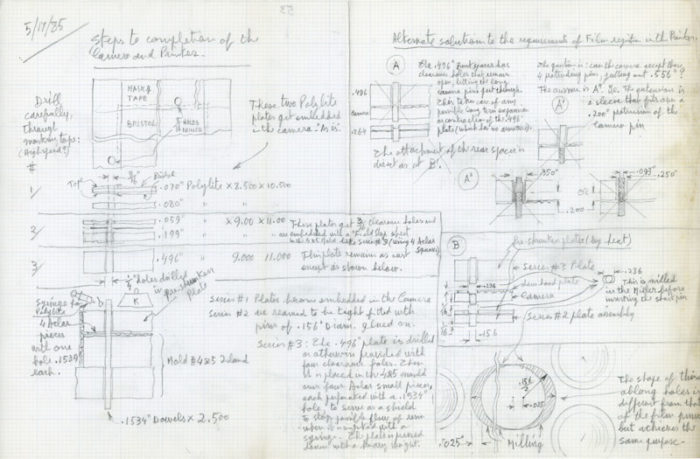 5/17/85
Steps to completion of the
Camera and Printer.
Drill
carefully
through
masking tape:
(High speed?)
MASK'G
TAPE
BRISTOL
These two Polylite
plates get embedded
in the camera "As is".
#
1
2
3
Top
.070" Polylite x 8.500 x 10.500
.080" " "
.059 " x 9.00 x 11.00
.199 " "
.496 " 9.000 11.000 This plate remains as cast
except as shown below.
These plates get
clearance holes and
Holes drilled
in Pre-shrunken
Plate
Syringe
Polylite
4 Aclar
pieces
with one
hole .1534
each.
K
Mold #4&5 Island
.1534" Dowels x 2.500
Series #1 Plates become embedded in the Camera
Series #2 are reamed to be tight fitted with
pins of .156" Diam. glued on.
Series #3: The .496" plate is drilled
or otherwise provided with
four clearance holes. Then
it is placed in the 4&5 mould
over four Aclar small pieces,
each perforated with a .1534"
hole, to serve as a shield
to stop possible flow of resin
when is injected with a
syringe. The plate is pressed
down with a heavy weight.
Alternate solution to the requirements of Film register with Printer
A
The .496" Back spacer has
clearance holes that remain
open, letting the long
camera pins get through.
This takes care of any
possible long term expansion
or contraction of the .496"
plate (which has no armature).
.496
camera
.264
The attachment of the rear spacer is
direct as at B.
The question is: can the camera accept then
4 protruding pins, jutting out .556"?
The answer is A'. I.e. The extension is
a sleeve that fits over a
.200" protrusion of the
camera pin
A'
A"
.350"
.200
.093
.250"
B
Pre-shrunken plate (by heat)
Series #3 Plate
Camera
Series #2 plate assembly
.156
.236
This is milled
in the Miller before
inserting the short pin
.156
.025
.025"
Milling
The shape of these
oblong holes is
different from that
of the film prisms
but achieves the
same purpose.